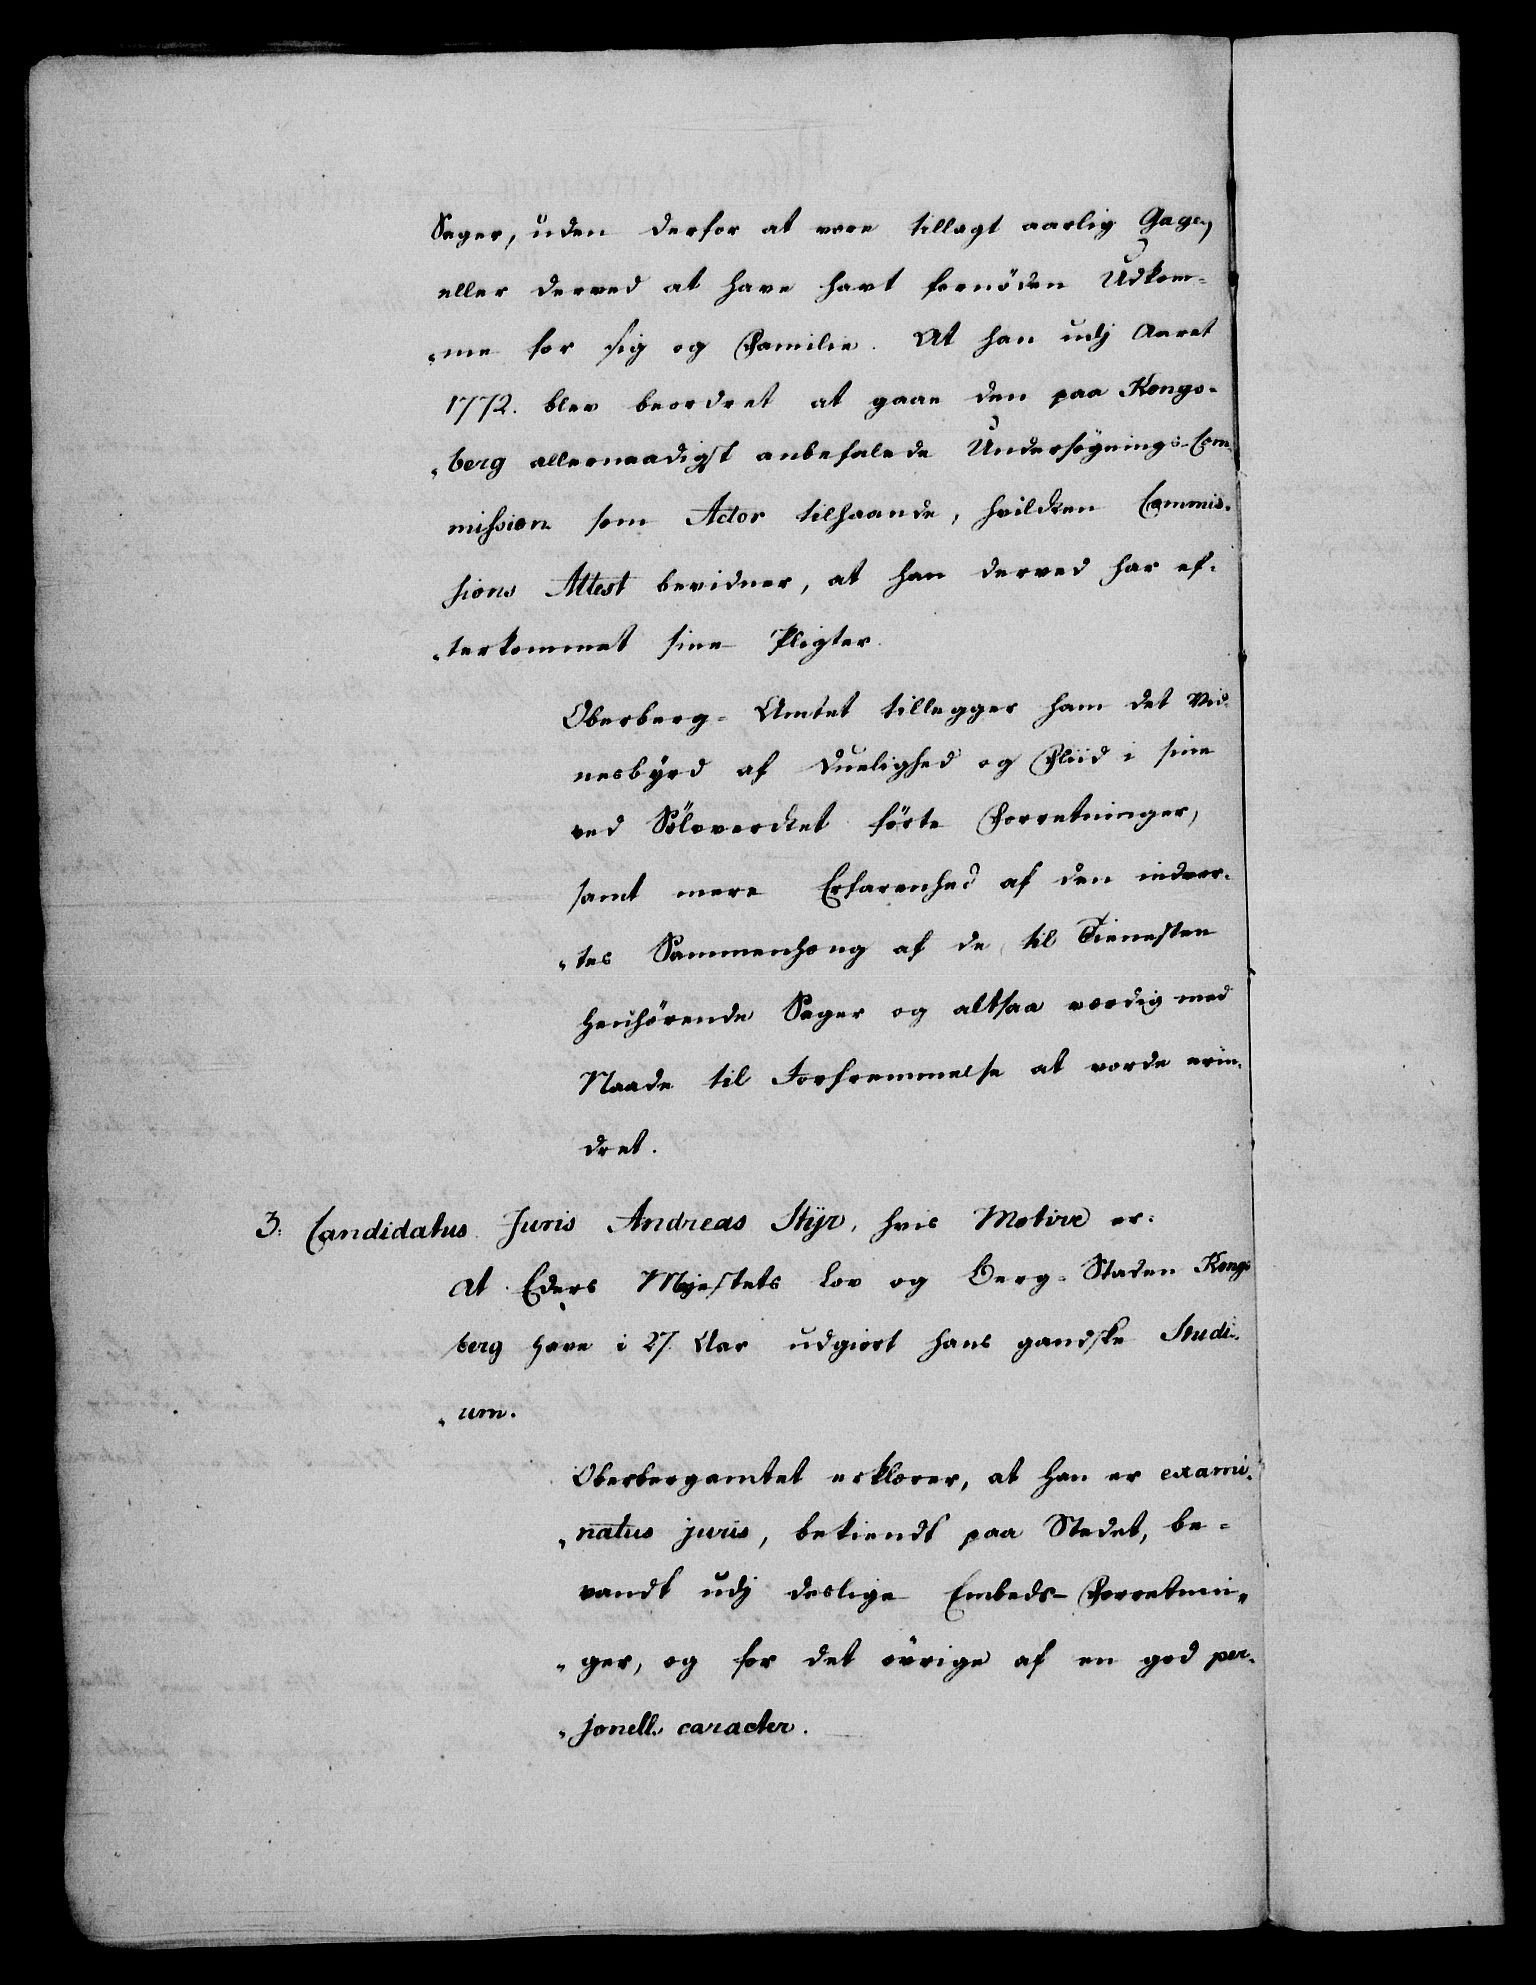 Sager, uden derfor at være tillagt aarlig Gage,
eller derved at have havt fornöden Udkom-
„me for sig og Familie. At han udj Aaret
1772. blev beordret at gaae den paa Kongs-
„berg allernaadigst anbefalede Undersögnings-Com-
mission som Actor tilhaande, hvilcken Commis-
sions Attest bevidner, at han derved har ef-
„terkommet sine Pligter.
Oberberg-Amtet tillegger ham det Vid-
nesbyrd af Duelighed og Fliid i sine
ved Sölvvercket förte Forretninger,
samt mere Erfarenhed af den indvor-
„tes Sammenhæng af de til Tienesten
henhörende Sager og altsaa værdig med
Naade til Forfremmelse at vorde erin-
dret.
3. Candidatus Juris Andreas Stÿr, hvis Motive er:
at Eders Majestets Lov og Berg-Staden Kongs
berg have i 27 Aar udgiort hans gandske Studi-
„um.
Oberbergamtet erklærer, at han er exami-
„natus juris, bekiendt paa Stedet, be-
vandt udj deslige Embeds-Forretnin-
„ger, og for det övrige af en god per-
„sonell caracter.